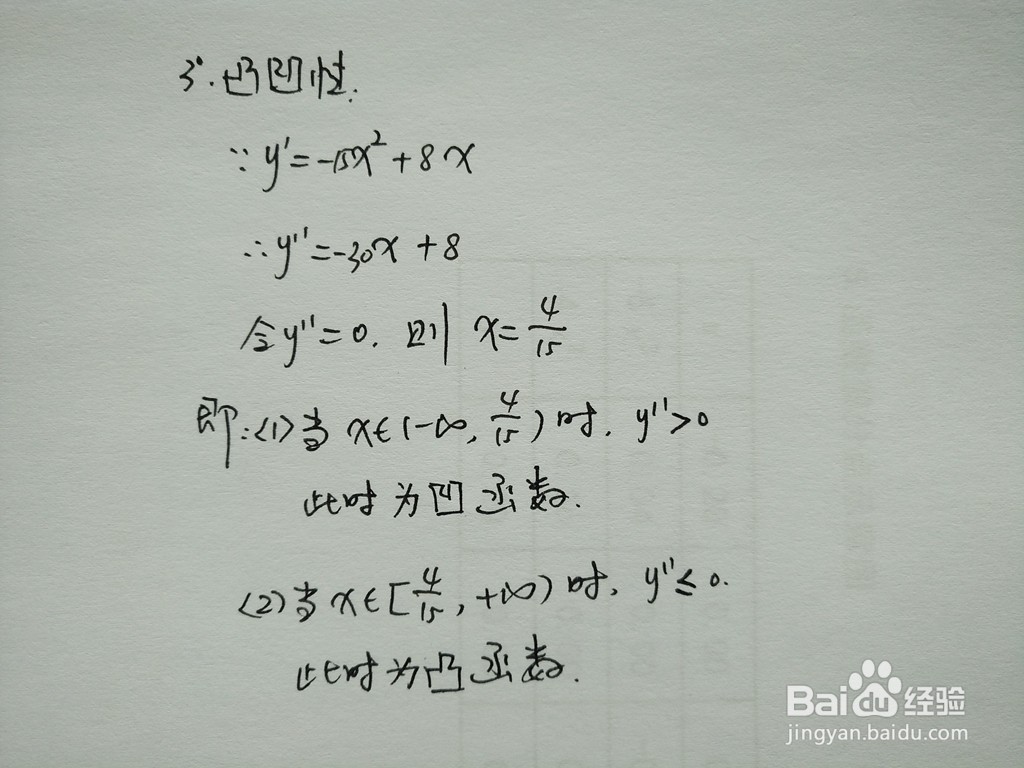 3°.凸凹性.
∵y'=-15x²+8x
∴y''=-30x+8
令y''=0.则 x=4/15
即:<1>当 x∈(-∞,4/15)时,y''>0
此时为凹函数.
<2>当 x∈[4/15,+∞)时,y''≤0.
此时为凸函数.
Baidu经验
jingyan.baidu.com